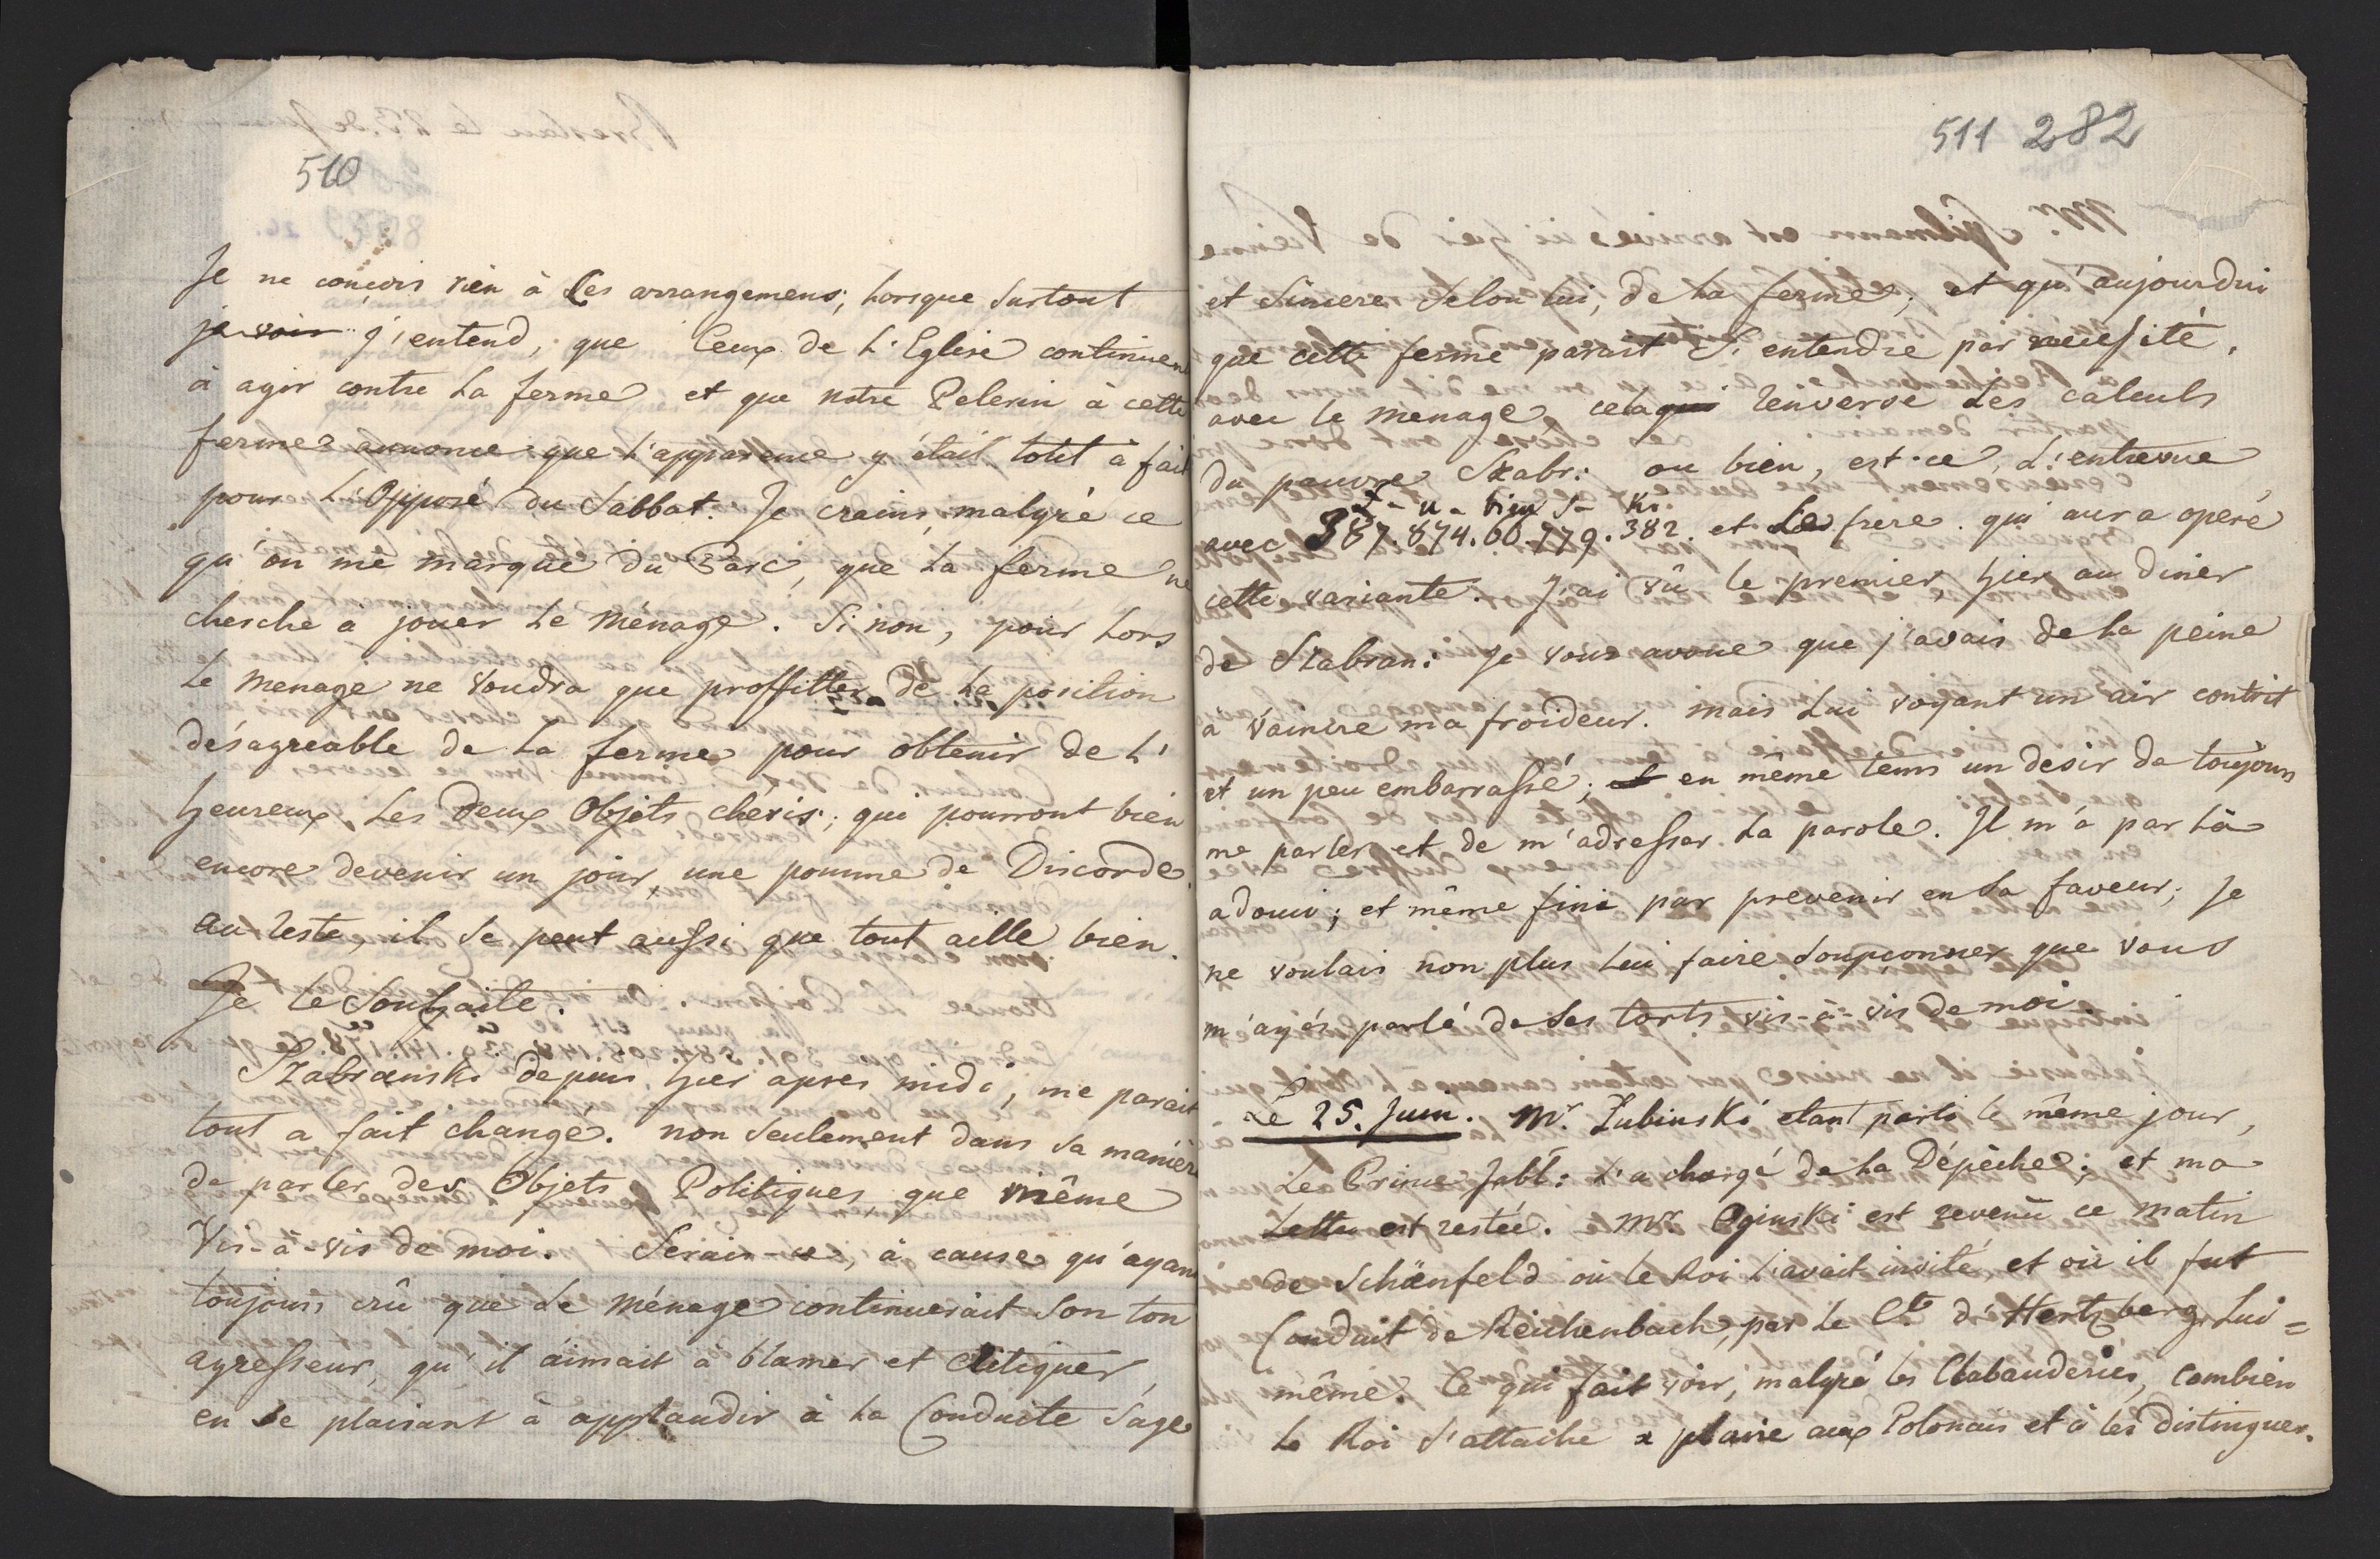 510
Je ne conçois rien à Ces arrangemens, lorsque surtout
je vois j'entend, que Ceux de L'Eglise continuent
à agir contre La ferme et que notre Pelerin à cette
ferme annonce que l'apparence y était tout à fait
pour L'Opposé du Sabbat. Je crains, malgré ce
qu'on me marque du Parc, que La ferme ne
cherche à jouer Le Ménage. Si non, pour Lors
Le Menage ne voudra que proffitter de La position
désagreable de La ferme pour obtenir de L'
heureux Les deux Objets chéris; qui pourront bien
encore devenir un jour, une pomme de Discorde.
au reste, il se peut aussi que tout aille bien.
Je Le souhaite.
Szabranski depuis hier apres midi, me parait
tout a fait changé. non seulement dans sa maniére
de parler des Objets Politiques, que même
Vis-à-vis de moi. Serais-ce, à cause qu'ayant
toujours crû que Le Ménage continuerait Son ton
agresseur, qu'il aimait à blamer et Critiquer,
en se plaisant à applaudir à La Conduite Sage
511 282
et Sincere Selon Lui, de La ferme; et qu'aujourdhui
que cette ferme parait S'entendre par necessité,
avec Le Menage, cela qui renverse Les calculs
du pauvre Szabr: ou bien, est-ce, L'entrevue
avec 387.874.60.779.382. et Le frere qui aura opéré
cette variante. J'ai vû Le premier, hier au diner
de Szabran: Je vous avoue que j'avais de La peine
à vaincre ma froideur. mais Lui voyant un air contrit
et un peu embarrassé; et en même tems un desir de toujours
me parler et de m'adresser La parole. Il m'a par Là
adouci; et même fini par prevenir en Sa faveur; Je
ne voulais non plus Lui faire Soupçonner que vous
m'ayés parlé de Ses torts vis-à-vis de moi.
Le 25. Juin. Mr. Zubinski etant parti Le même jour,
Le Prince Jabł: L'a chargé de La Dépèche; et ma
Lettre est restée. Mr. Oginski est revenû ce matin
de Schönfeld où Le Roi L'avait invité et où il fut
Conduit de Reichenbach, par Le Cte d'Hertzberg Lui=
même. Ce qui fait voir, malgré les Clabauderies, combien
Le Roi S'attache a plaire aux Polonais et à Les distinguer.